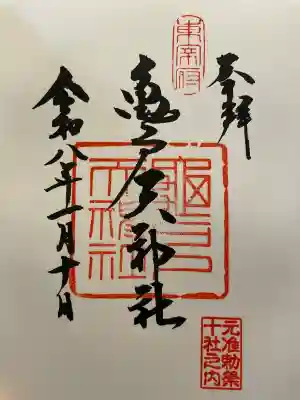 奉拝
東宰府
亀戸天神社
龜戸
天神社
令和八年一月十日
元准勅祭
十社之内